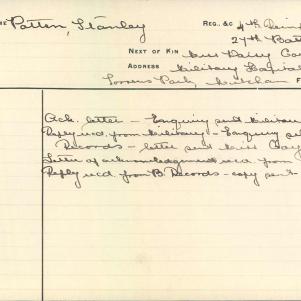 ME Patten, Stanley REG., &C 4th Rein
27th Batt
NEXT OF KIN Miss Daisy
ADDRESS Military Hospital
Park, F
Ack. letter — Enquiry sent Military
Reply recd. from Military — Enquiry sent
Records — letter sent Miss
Letter of acknowledgement recd. from
Reply recd. from B. Records — copy sent